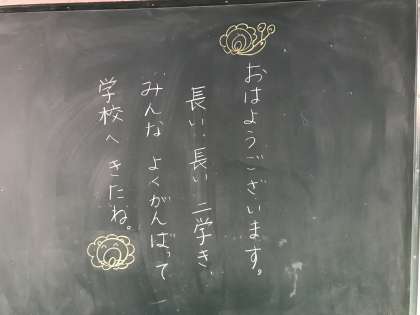 おはようございます。
長い、長い 二学き、
みんな よくがんばって
学校へ きたね。